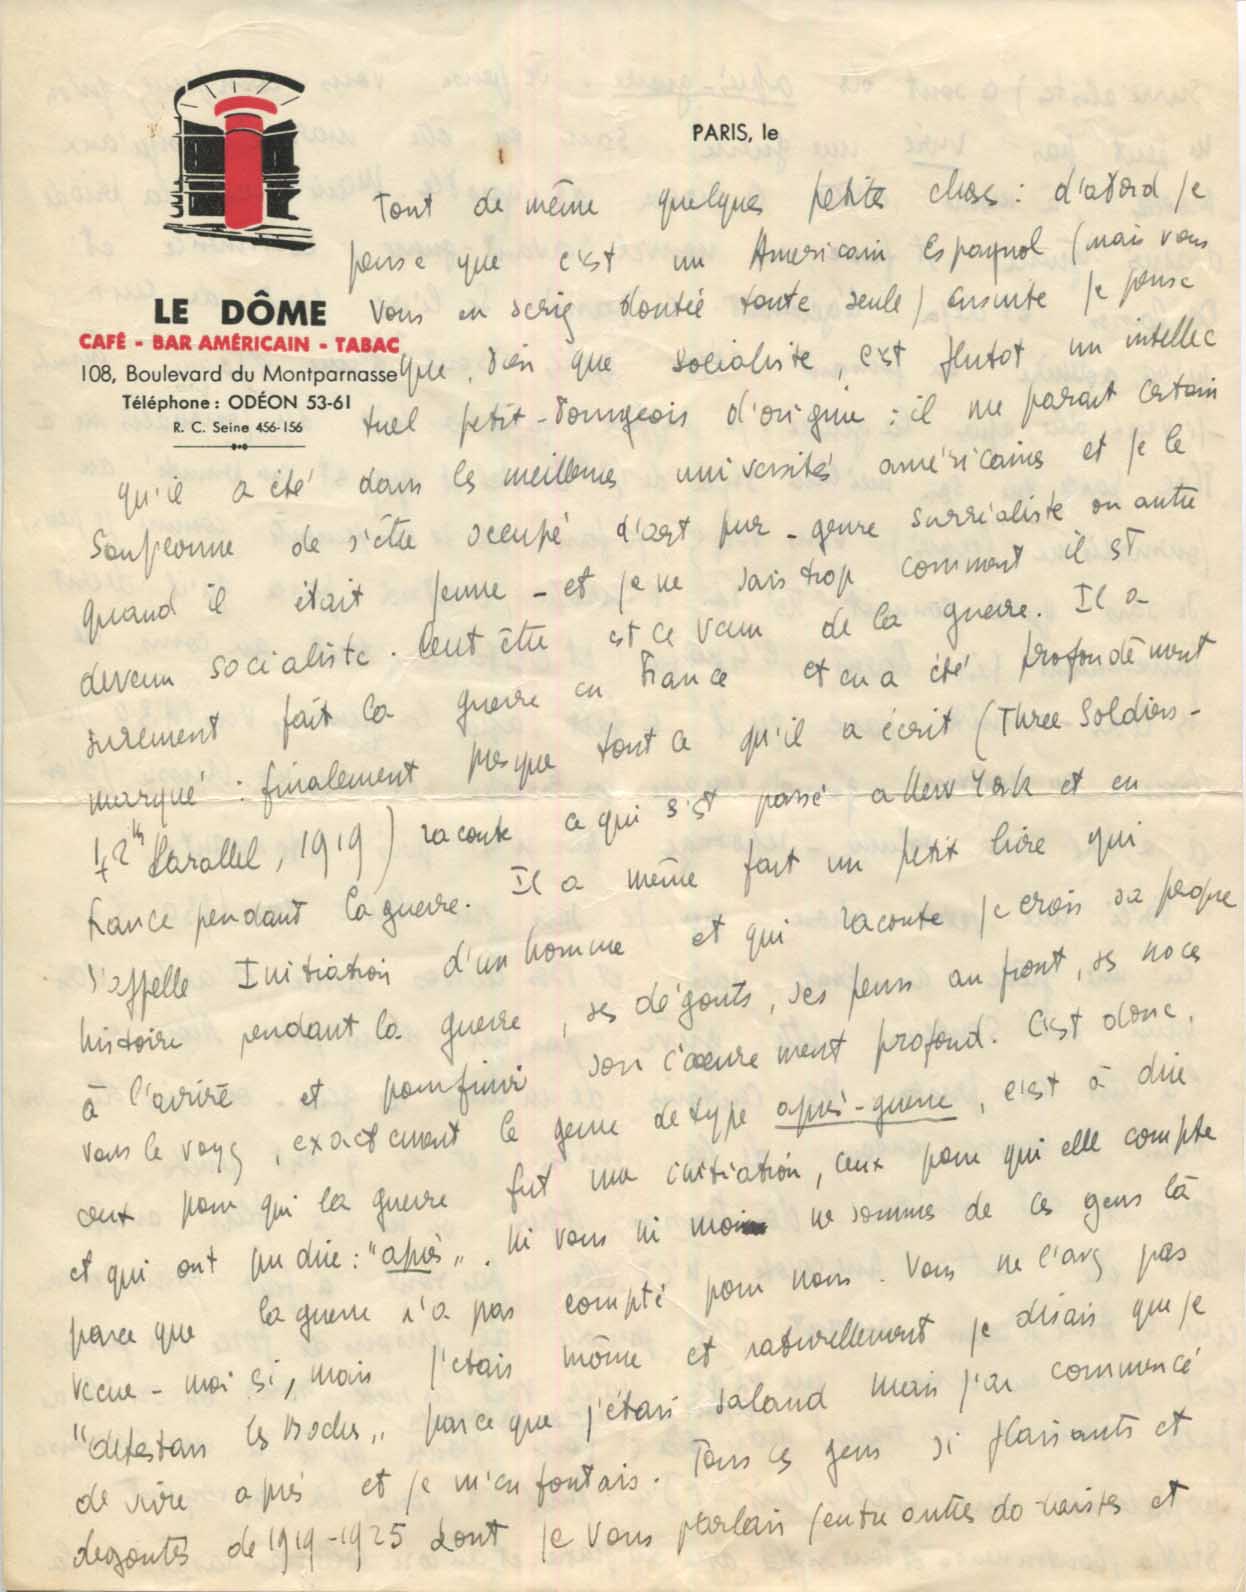 PARIS, le
LE DÔME
CAFÉ - BAR AMÉRICAIN - TABAC
108, Boulevard du Montparnasse
Téléphone : ODÉON 53-61
R. C. Seine 456-156
Tout de même quelques petites choses : d'abord je
pense que c'est un Americain Espagnol (mais vous
vous en seriez doutée toute seule) ensuite je pense
que, bien que socialiste, c'est plutot un intellec
tuel petit-bourgeois d'origine : il me parait certain
qu'il a été dans les meilleures universités américaines et je le
soupconne de s'être occupé d'art pur - genre surréaliste ou autre
quand il était jeune - et je ne sais trop comment il st
devenu socialiste. Peut être est ce venu de la guerre. Il a
surement fait la guerre en France et en a été profondément
marqué : finalement presque tout ce qu'il a écrit (Three Soldiers -
42th Parallel, 1919) raconte ce qui s'est passé a New York et en
France pendant la guerre. Il a même fait un petit livre qui
s'appelle Initiation d'un homme et qui raconte je crois sa propre
histoire pendant la guerre, ses dégouts, ses peurs au front, ses noces
à l'arrière et pour finir son écoeurement profond. C'est donc,
vous le voyez, exactement le genre de type après-guerre, c'est à dire
ceux pour qui la guerre fut une initiation, ceux pour qui elle compte
et qui ont pu dire : "après". Ni vous ni moi ne sommes de ces gens là
parce que la guerre n'a pas compté pour nous. Vous ne l'avez pas
vecue - moi si, mais j'etais môme et naturellement je disais que je
"detestais les Boches" parce que j'étais salaud mais j'ai commencé
de vivre après et je m'en foutais. Tous ces gens si plaisants et
degoutés de 1919-1925 dont je vous parlais (entre autres et